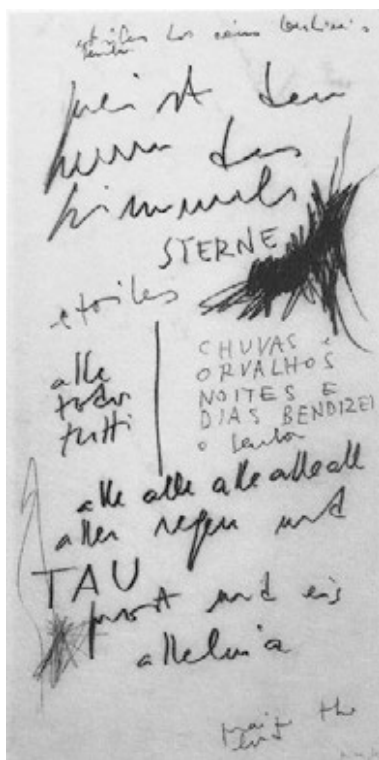 preist den
herrn des
himmels
STERNE
etoiles
alle
todos
tutti
CHUVAS E
ORVALHOS
NOITES E
DIAS BENDIZEI
o
alle alle alle alle alle
aller regen und
TAU
frost und eis
alleluia
praise the
lord